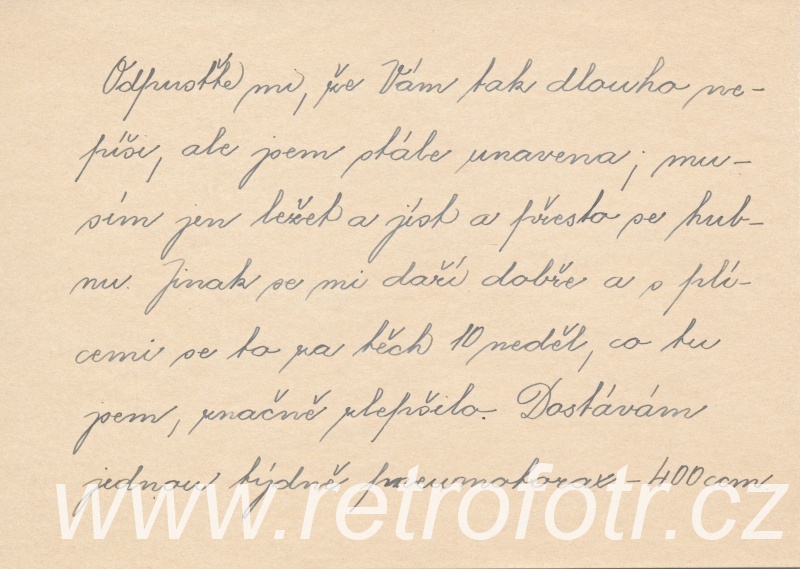 Odpusťte mi, že Vám tak dlouho ne-
píši, ale jsem stále unavena; mu-
sím jen ležet a jíst a přesto se hub-
nu. Jinak se mi daří dobře a s plí-
cemi se to za těch 10 neděl, co tu
jsem, značně zlepšilo. Dostávám
jednou týdně pneumotorax – 400 ccm
www.retrofotr.cz